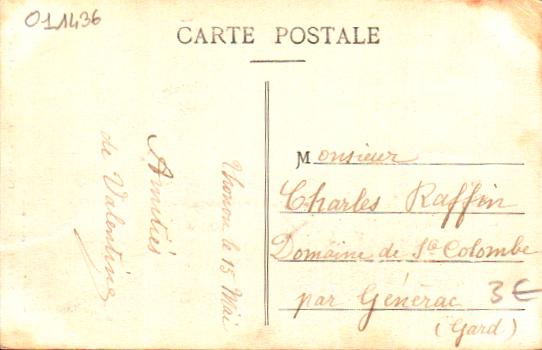 011436
CARTE POSTALE
Thonon le 15 Mai
Amitiés
de Valentine
Monsieur
Charles Raffin
Domaine de Ste Colombe
par Générac
(Gard)
3€